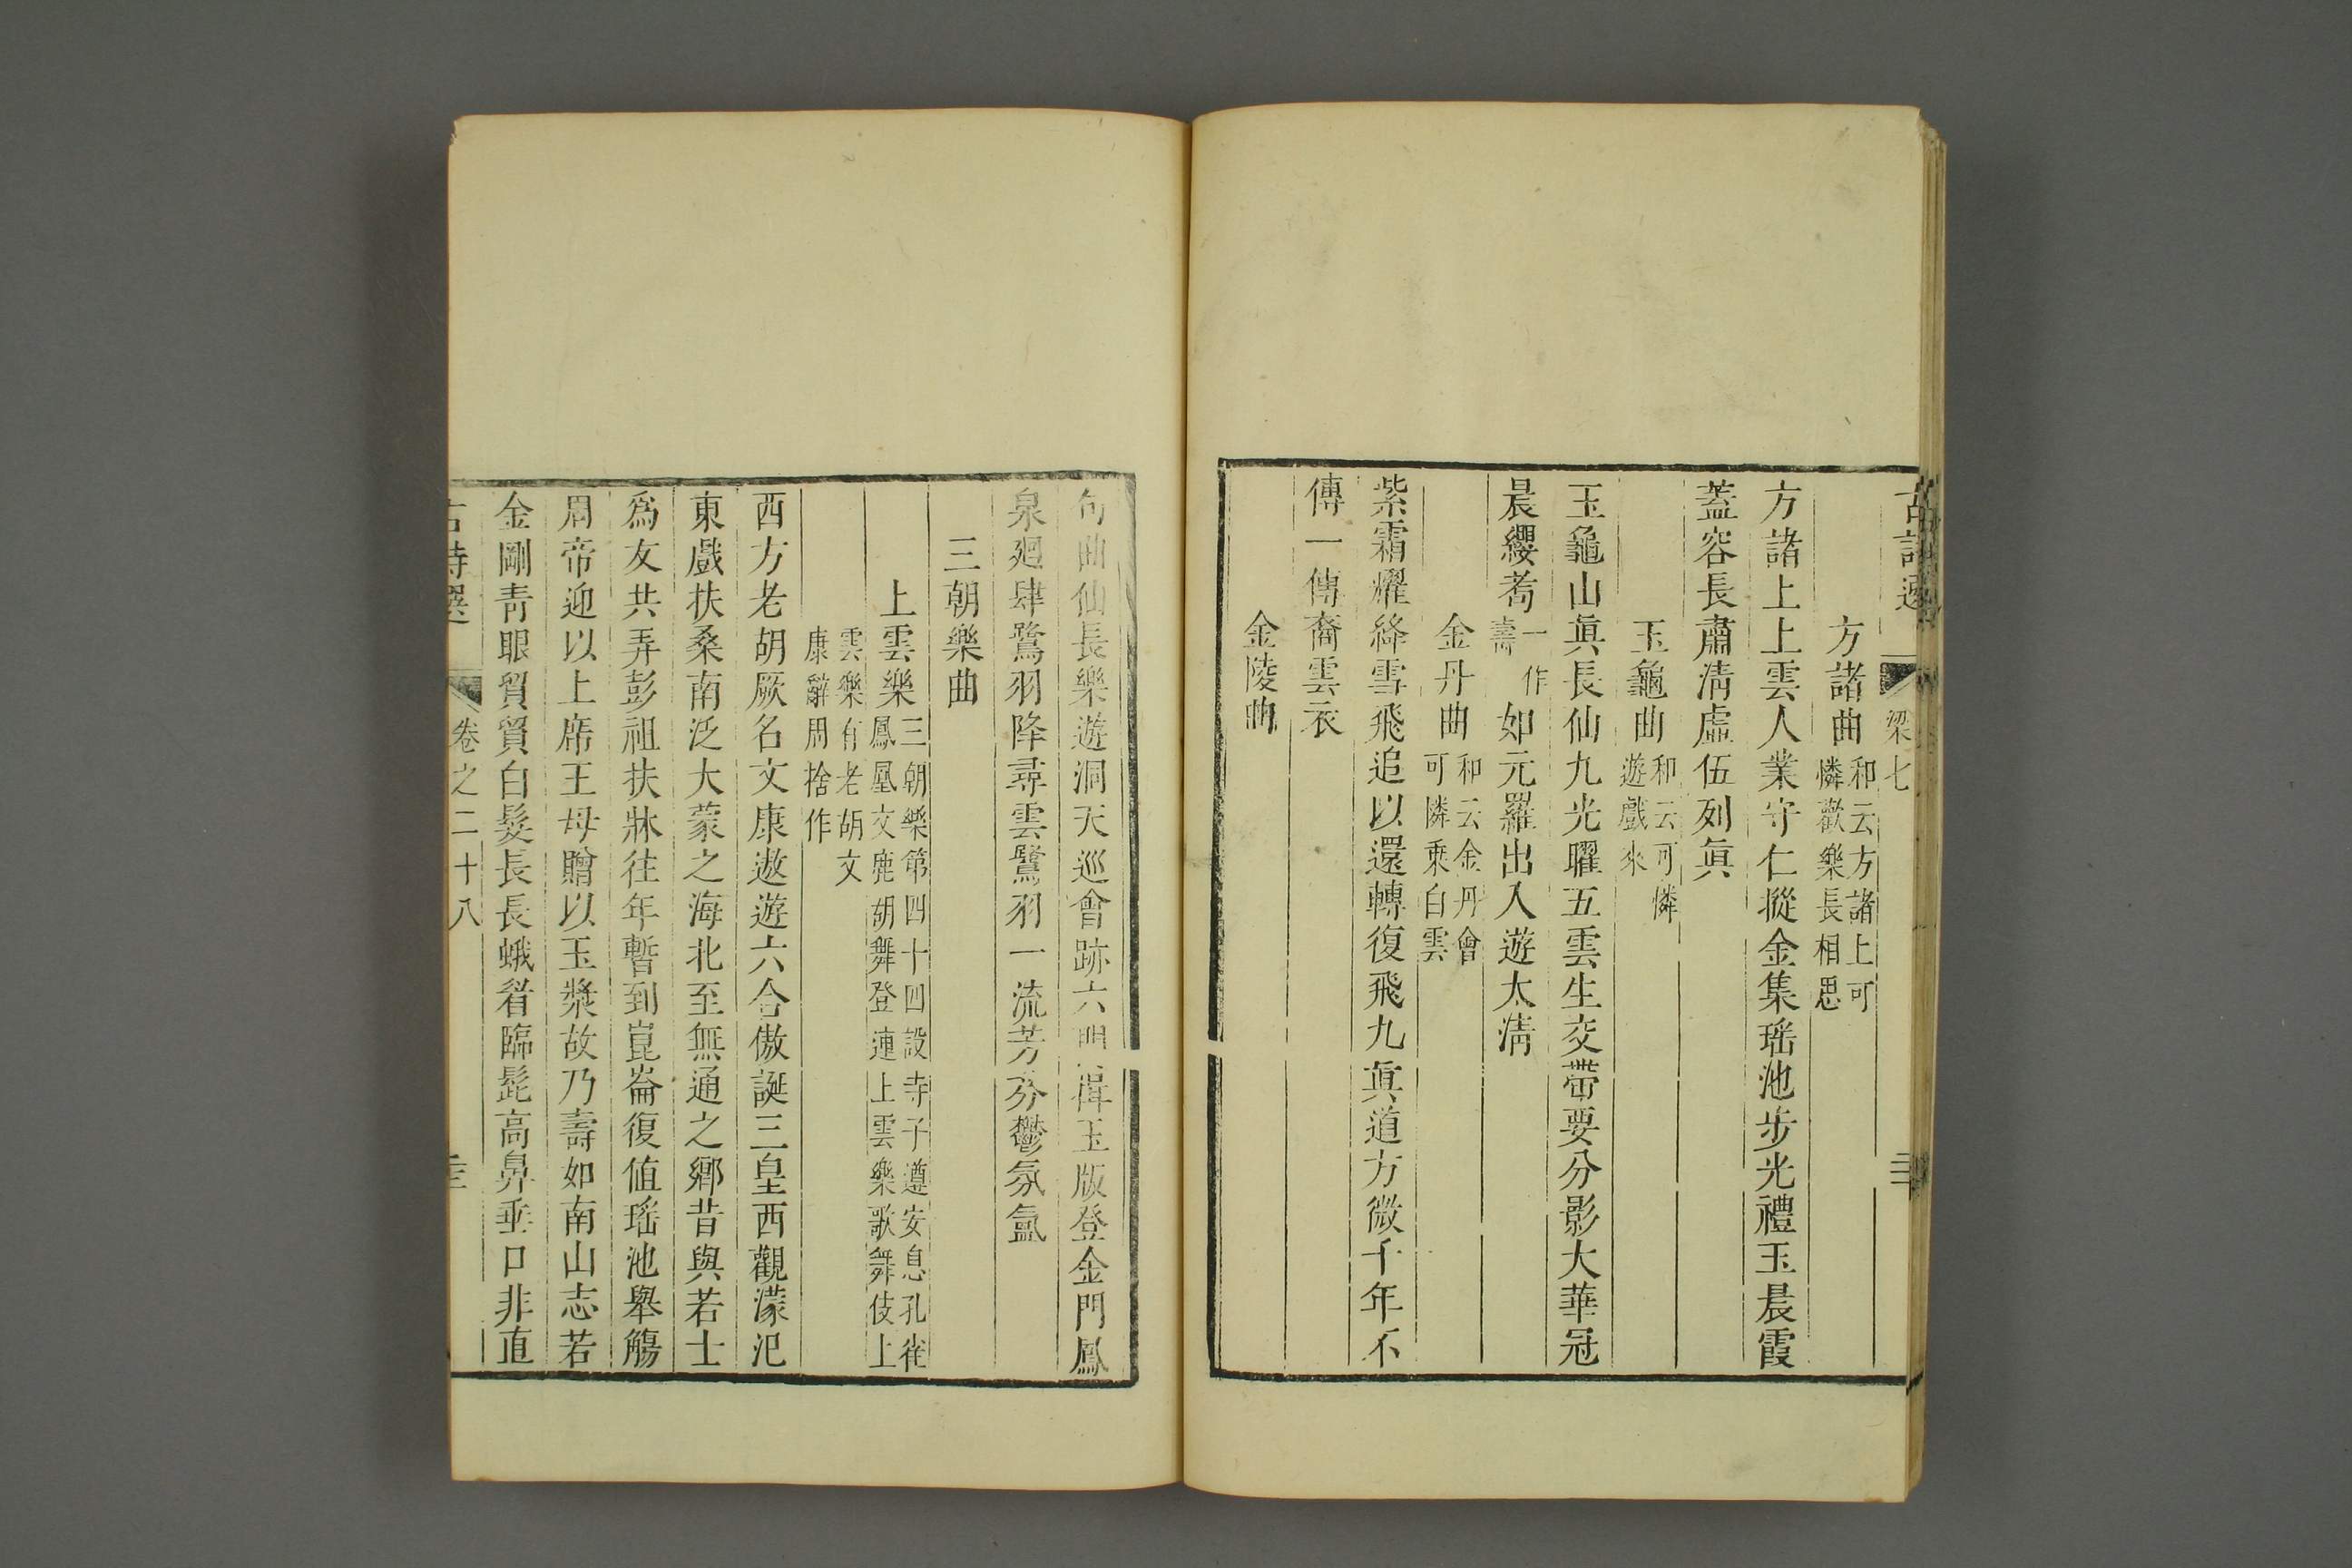 梁七
方諸曲和云方諸上可憐歡樂長相思
方諸上上雲人業守仁摐金集瑤池步光禮玉晨霞
蓋容長肅清虛伍列眞
玉龜曲和云可憐遊戲來
玉龜山眞長仙九光曜五雲生交帶要分影大華冠
晨纓耉一作壽如元羅出入遊太清
金丹曲和云金丹會可憐乘白雲
紫霜耀絳雪飛追以還轉復飛九眞道方微千年不
傳一傳裔雲衣
金陵曲
句曲仙長樂遊洞天巡會跡六門揖玉版登金門鳳
泉廻肆鷺羽降尋雲鷺羽一流芳芬鬱氛氳
三朝樂曲
上雲樂三朝樂第四十四設寺子遵安息孔雀鳳凰文鹿胡舞登連上雲樂歌舞伎上
雲樂有老胡文康辭周捨作
西方老胡厥名文康遨遊六合傲誕三皇西觀濛汜
東戲扶桑南泛大蒙之海北至無通之鄉昔與若士
爲友共弄彭祖扶牀往年暫到崑崙復値瑤池舉觴
周帝迎以上席王母贈以玉漿故乃壽如南山志若
金剛靑眼眢眢白髮長長蛾眉臨髭高鼻垂口非直
古詩選 卷之二十八